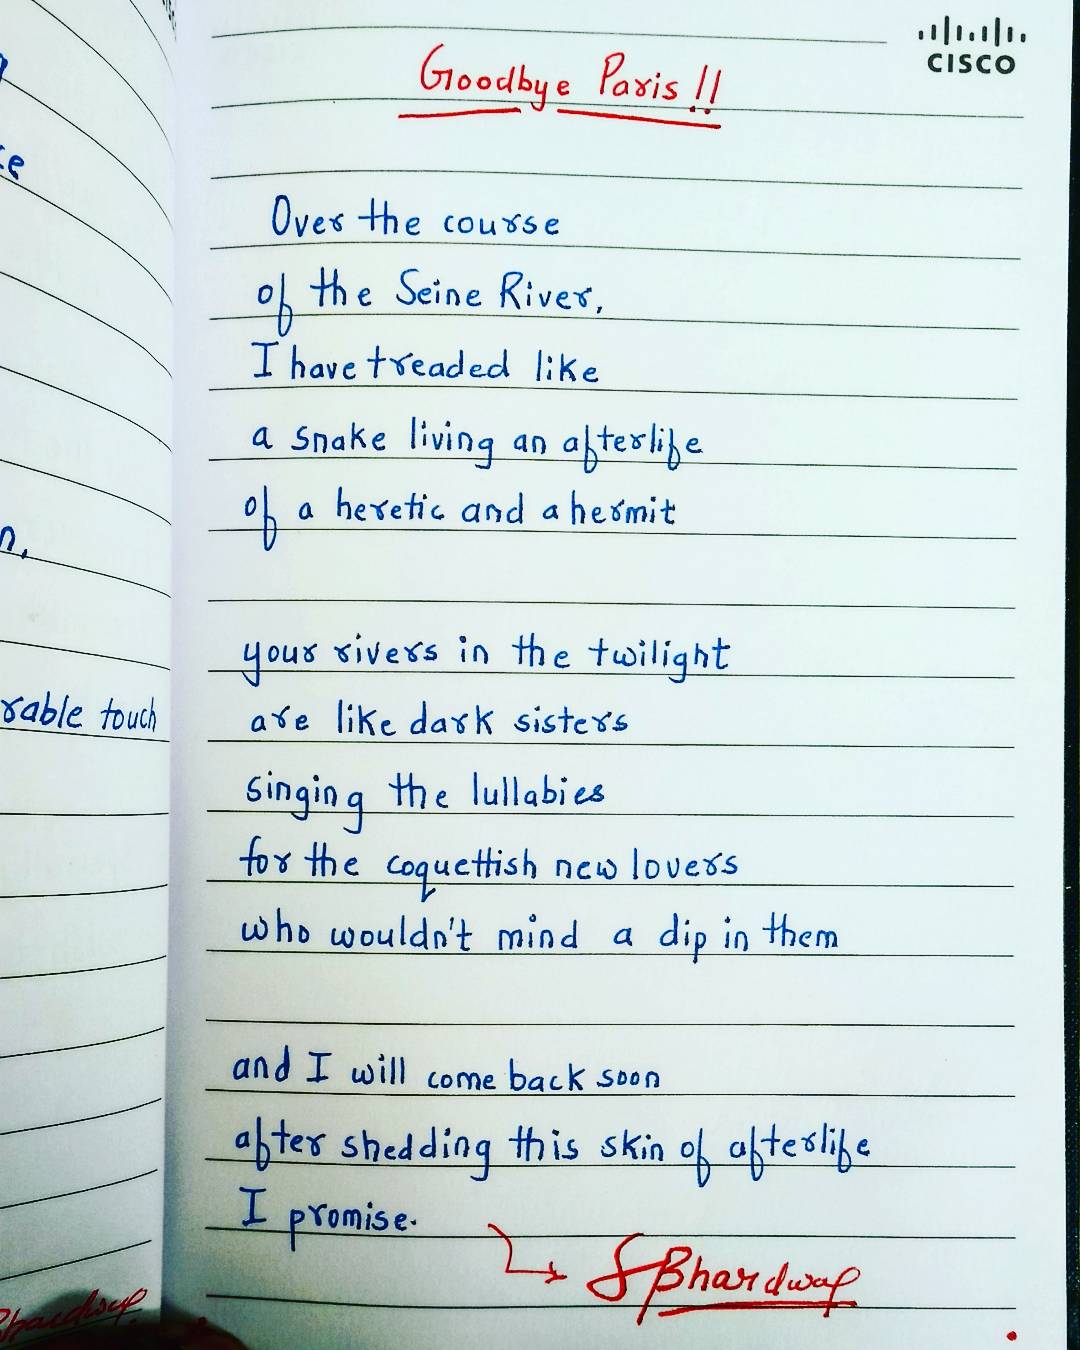 CISCO
Goodbye Paris!!
Over the course
of the Seine River,
I have treaded like
a snake living an afterlife
of a heretic and a hermit
your rivers in the twilight
are like dark sisters
singing the lullabies
for the coquettish new lovers
who wouldn't mind a dip in them
and I will come back soon
after shedding this skin of afterlife
I promise.
SBhardwaj
rable touch